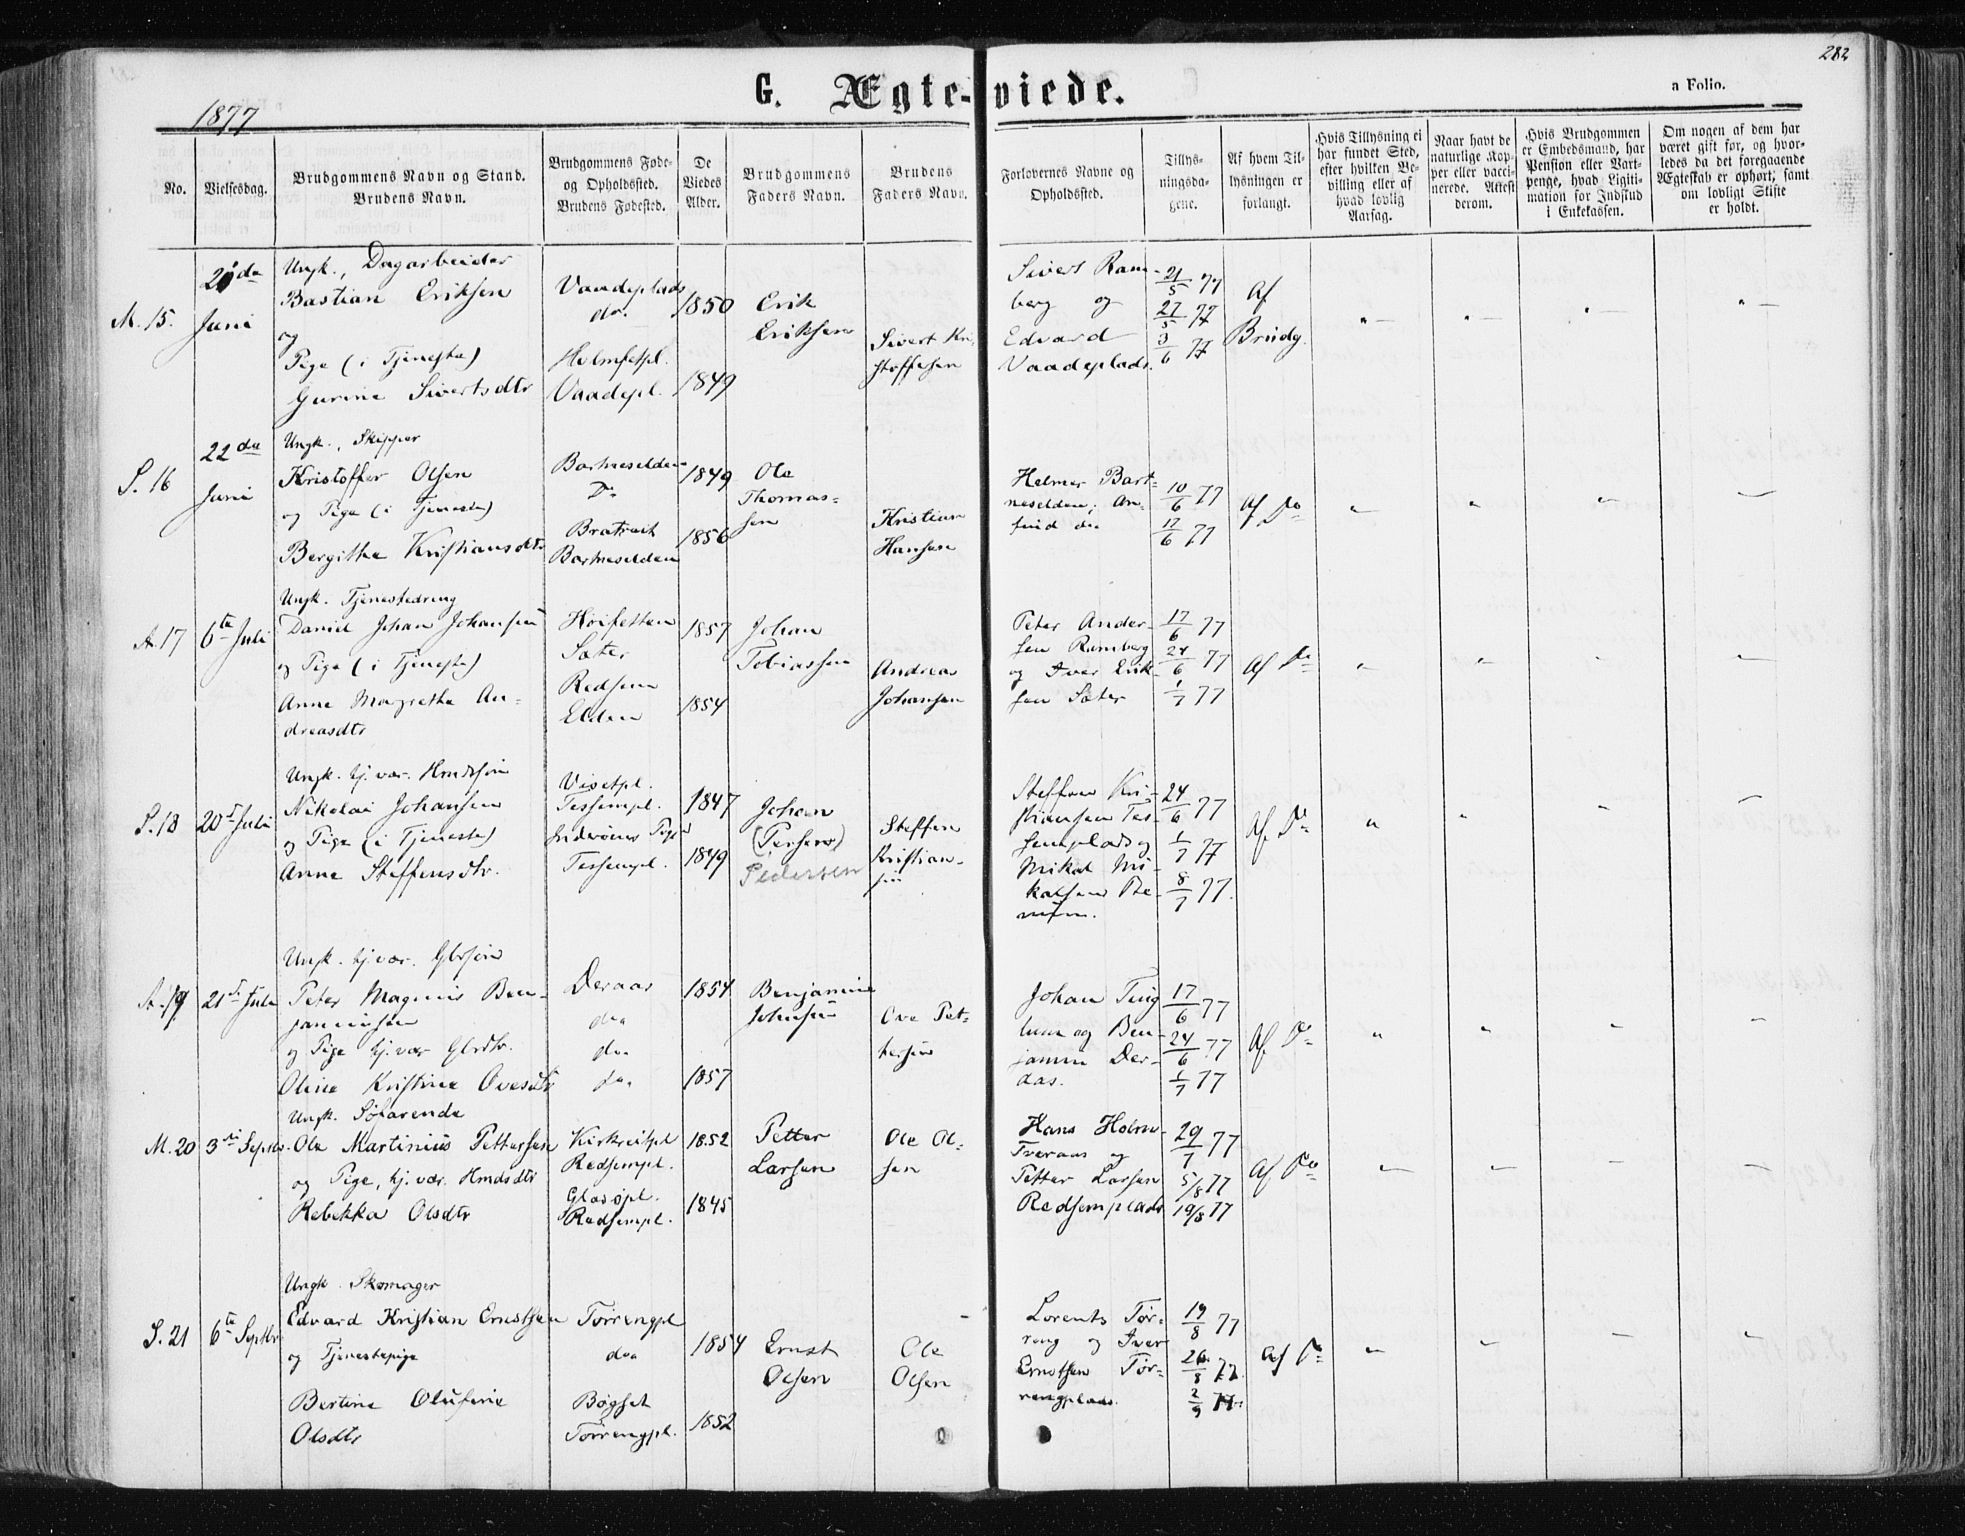 282
G. Ægte-viede.
a Folio.
1877
No.
Vielsesdag.
Brudgommens Navn og Stand.
Brudens Navn.
Brudgommens Føde-
og Opholdssted.
Brudens Fødested.
De
Viedes
Alder.
Brudgommens
Faders Navn.
Brudens
Faders Navn.
Forlovernes Navne og
Opholdssted.
Tillys-
ningsda-
gene.
Af hvem Til-
lysningen er
forlangt.
Hvis Tillysning ei
har fundet Sted,
efter hvilken Be-
villing eller af
hvad lovlig
Aarsag.
Naar havt de
naturlige Kop-
per eller vacci-
nerede. Attest
derom.
Hvis Brudgommen
er Embedsmand, har
Pension eller Vart-
penge, hvad Ligiti-
mation for Indskud
i Enkekassen.
Om nogen af dem har
været gift før, og hvor-
ledes da det foregaaende
Ægteskab er ophørt; samt
om lovligt Skifte
er holdt.
M. 15.
Juni
Ungk., Dagarbeider
Bastian Eriksen
og
Pige (i Tjeneste)
Gurine Sivertsdtr
Vaadeplads
do.
Holmsetpl.
Vaadepl.
1850
1849
Erik
Eriksen
Sivert Kri-
stoffesen
Sivert Ram-
berg og
Edvard
Vaadeplads.
21/5 77
27/5 77
3/6 77
Af
Brudg.
"— "— "— "—
S. 16
22de
Juni
Ungk., Skipper
Kristoffer Olsen
og Pige (i Tjeneste)
Bergitha Kristiansdtr
Bartneselden
Do
Bratreit
Bartneselden
1849
1856
Ole
Thomas-
sen
Kristian
Hansen
Helmer Bart-
neselden; An-
find do
10/6 77
17/6 77
Af Do
" " " —
A. 17
6te Juli
Ungk. Tjenestedreng
Daniel Johan Johansen
og Pige (i Tjeneste)
Anne Margretha An-
dreasdtr
Høisetten
Sæter
Redsem
Elden
1857
1854
Johan
Tobiassen
Andreas
Johansen
Peter Ander-
sen Ramberg
og Iver Erik-
sen Sæter
17/6 77
24/6 77
1/7 77
Af Do
" " " —
S. 18
20de Juli
Ungk. hj.vær. Hmdsøn
Nikolai Johansen
og Pige (i Tjeneste)
Anne Steffensdtr.
Visetpl.
Tessempl.
Tessempl.
1847
1849
Johan
Pedersen
Steffen
Kristian-
sen
Steffen Kri-
stiansen Tes-
semplads og
Mikal Mi-
kalsen
24/6 77
1/7 77
8/7 77
Af. Do
" " " —
A. 19
21de Juli
Ungk. hj.vær. Gbrsøn
Peter Magnus Ben-
jaminsen
og Pige hj.vær Gbrdtr.
Oline Kristine Ovesdtr
Deraas
do
do
do
1854
1857
Benjamin
Johnsen
Ove Pet-
tersen
Johan Ting-
lum og Ben-
jamin Der-
aas.
17/6 77
24/6 77
1/7 77
Af. Do
" " " —
M. 20
3die Septbr.
Ungk. Søfarende
Ole Martinius Pettersen
og Pige, hj.vær. Hmdsdtr
Rebekka Olsdtr
Kirkreitpl
Redsempl.
Glasøpl.
Redsempl.
1852
1845
Petter
Larsen
Ole Ol-
sen
Hans Holm-
Tveraas og
Petter Larsen
Redsemplads
29/7 77
5/8 77
19/8 77
Af Do
" " " —
S. 21
6te Septbr
Ungk. Skomager
Edvard Kristian Ernstsen
og Tjenestepige
Bertine Olufine
Olsdtr
Tørrengpl
do
Bøgset
Tørrengpl.
1854
1852
Ernst
Olsen
Ole
Olsen
Lorents Tør-
reng og Iver
Ernstsen Tør-
rengplads.
19/8 77
26/8 77
2/9 77
Af Do
" " " "